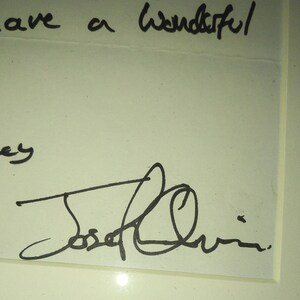 ave a Wonderful
ey
Joseph Quinn